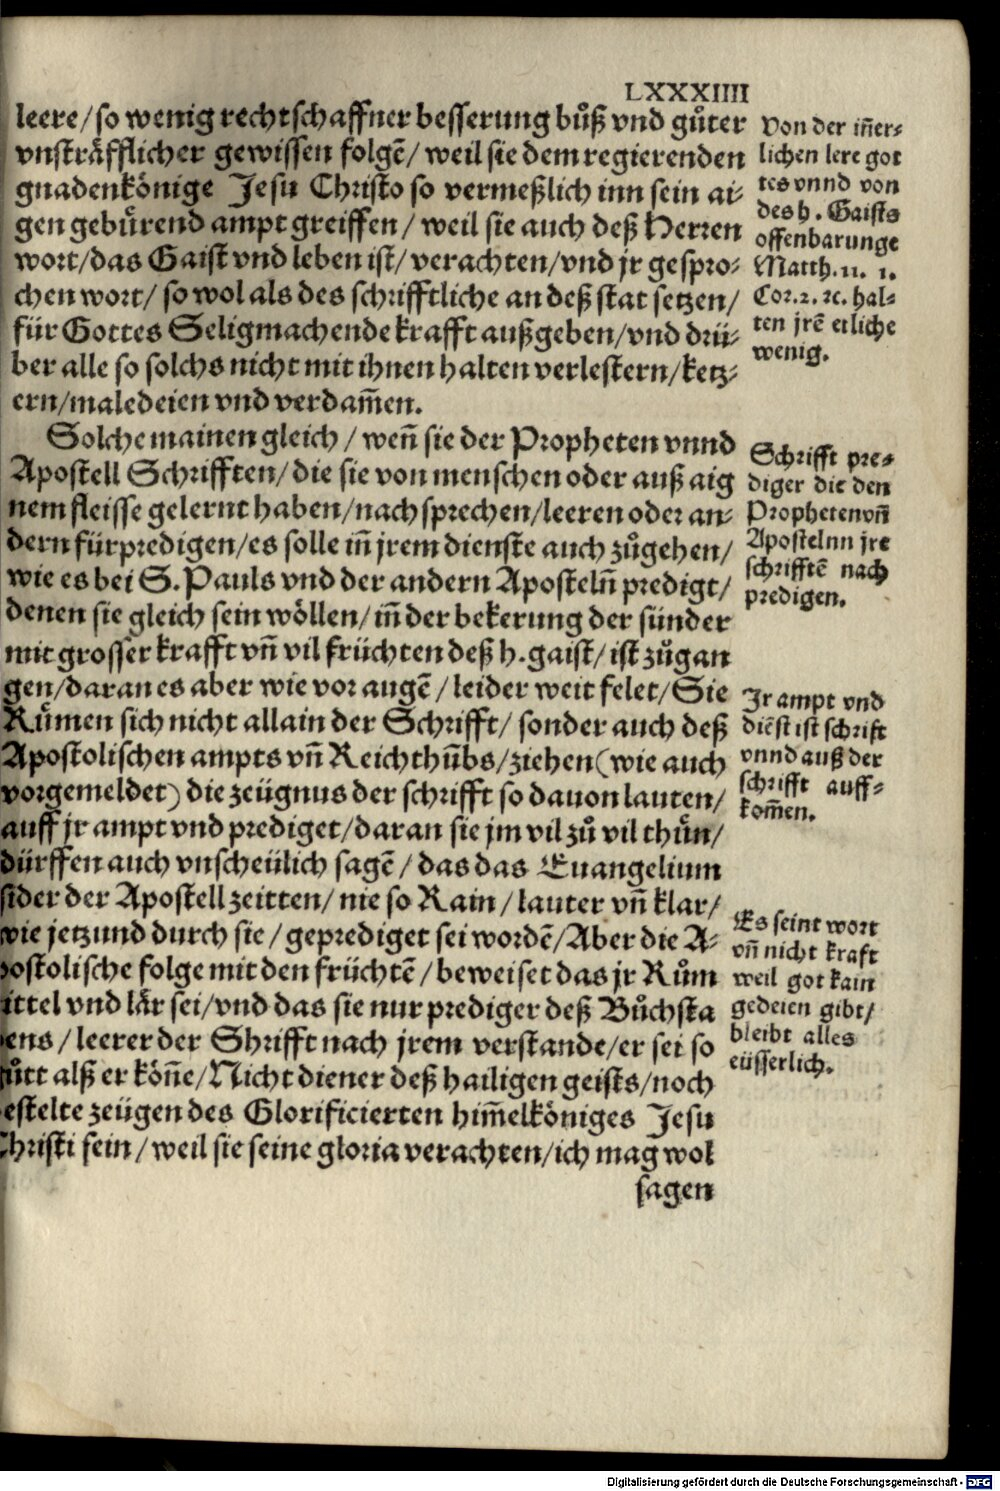 LXXXIIII
leere/so wenig rechtschaffner besserung bůß vnd gůter
vnsträfflicher gewissen folgẽ/ weil sie dem regierenden
gnadenkönige Jesu Christo so vermeßlich inn sein ai-
gen gebürend ampt greiffen/ weil sie auch deß Herren
wort/das Gaist vnd leben ist/verachten/vnd jr gespro-
chen wort/ so wol als des schrifftliche an deß stat setzen/
für Gottes Seligmachende krafft außgeben/vnd drü-
ber alle so solchs nicht mit ihnen halten verlestern/ketz-
ern/maledeien vnd verdam̃en.
Solche mainen gleich/ wen̄ sie der Propheten vnnd
Apostell Schrifften/die sie von menschen oder auß aig
nem fleisse gelernt haben/nach sprechen/leeren oder an-
dern fürpredigen/es solle in̄ jrem dienste auch zůgehen/
wie es bei S. Pauls vnd der andern Aposteln̄ predigt/
denen sie gleich sein wöllen/in̄ der bekerung der sünder
mit grosser krafft vn̄ vil früchten deß h. gaist/ ist zůgan
gen/daran es aber wie vor augẽ/leider weit felet/Sie
Růmen sich nicht allain der Schrifft/ sonder auch deß
Apostolischen ampts vn̄ Reichthům̄bs/ziehen (wie auch
vorgemeldet) die zeügnus der schrifft so dauon lauten/
auff jr ampt vnd prediget/daran sie jm vil zů vil thůn/
dürffen auch vnscheülich sagẽ/das das Euangelium
sider der Apostell zeitten/ nie so Rain/lauter vn̄ klar/
wie jetzund durch sie/geprediget sei wordẽ/Aber die A-
postolische folge mit den früchtẽ/beweiset das jr Rům
ittel vnd lär sei/vnd das sie nur prediger deß Bůchsta
ens/leerer der Shrifft nach jrem verstande/er sei so
ůtt alß er kön̄e/Nicht diener deß hailigen geists/noch
estelte zeügen des Glorificierten him̃elköniges Jesu
Christi sein/weil sie seine gloria verachten/ich mag wol
sagen
Von der in̄er-
lichen lere got
tes vnnd von
des h. Gaists
offenbarunge
Matth.11. 1.
Cor.2. ꝛc. hal-
ten jrẽ etliche
wenig.
Schrifft pre-
diger die den
Propheten vn̄
Apostelnn jre
schrifftẽ nach
predigen.
Jr ampt vnd
diẽst ist schrift
vnnd auß der
schrifft auff-
kom̃en.
Es seint wort
vn̄ nicht kraft
weil got kain
gedeien gibt/
bleibt alles
eüsserlich.
Digitalisierung gefördert durch die Deutsche Forschungsgemeinschaft - DFG